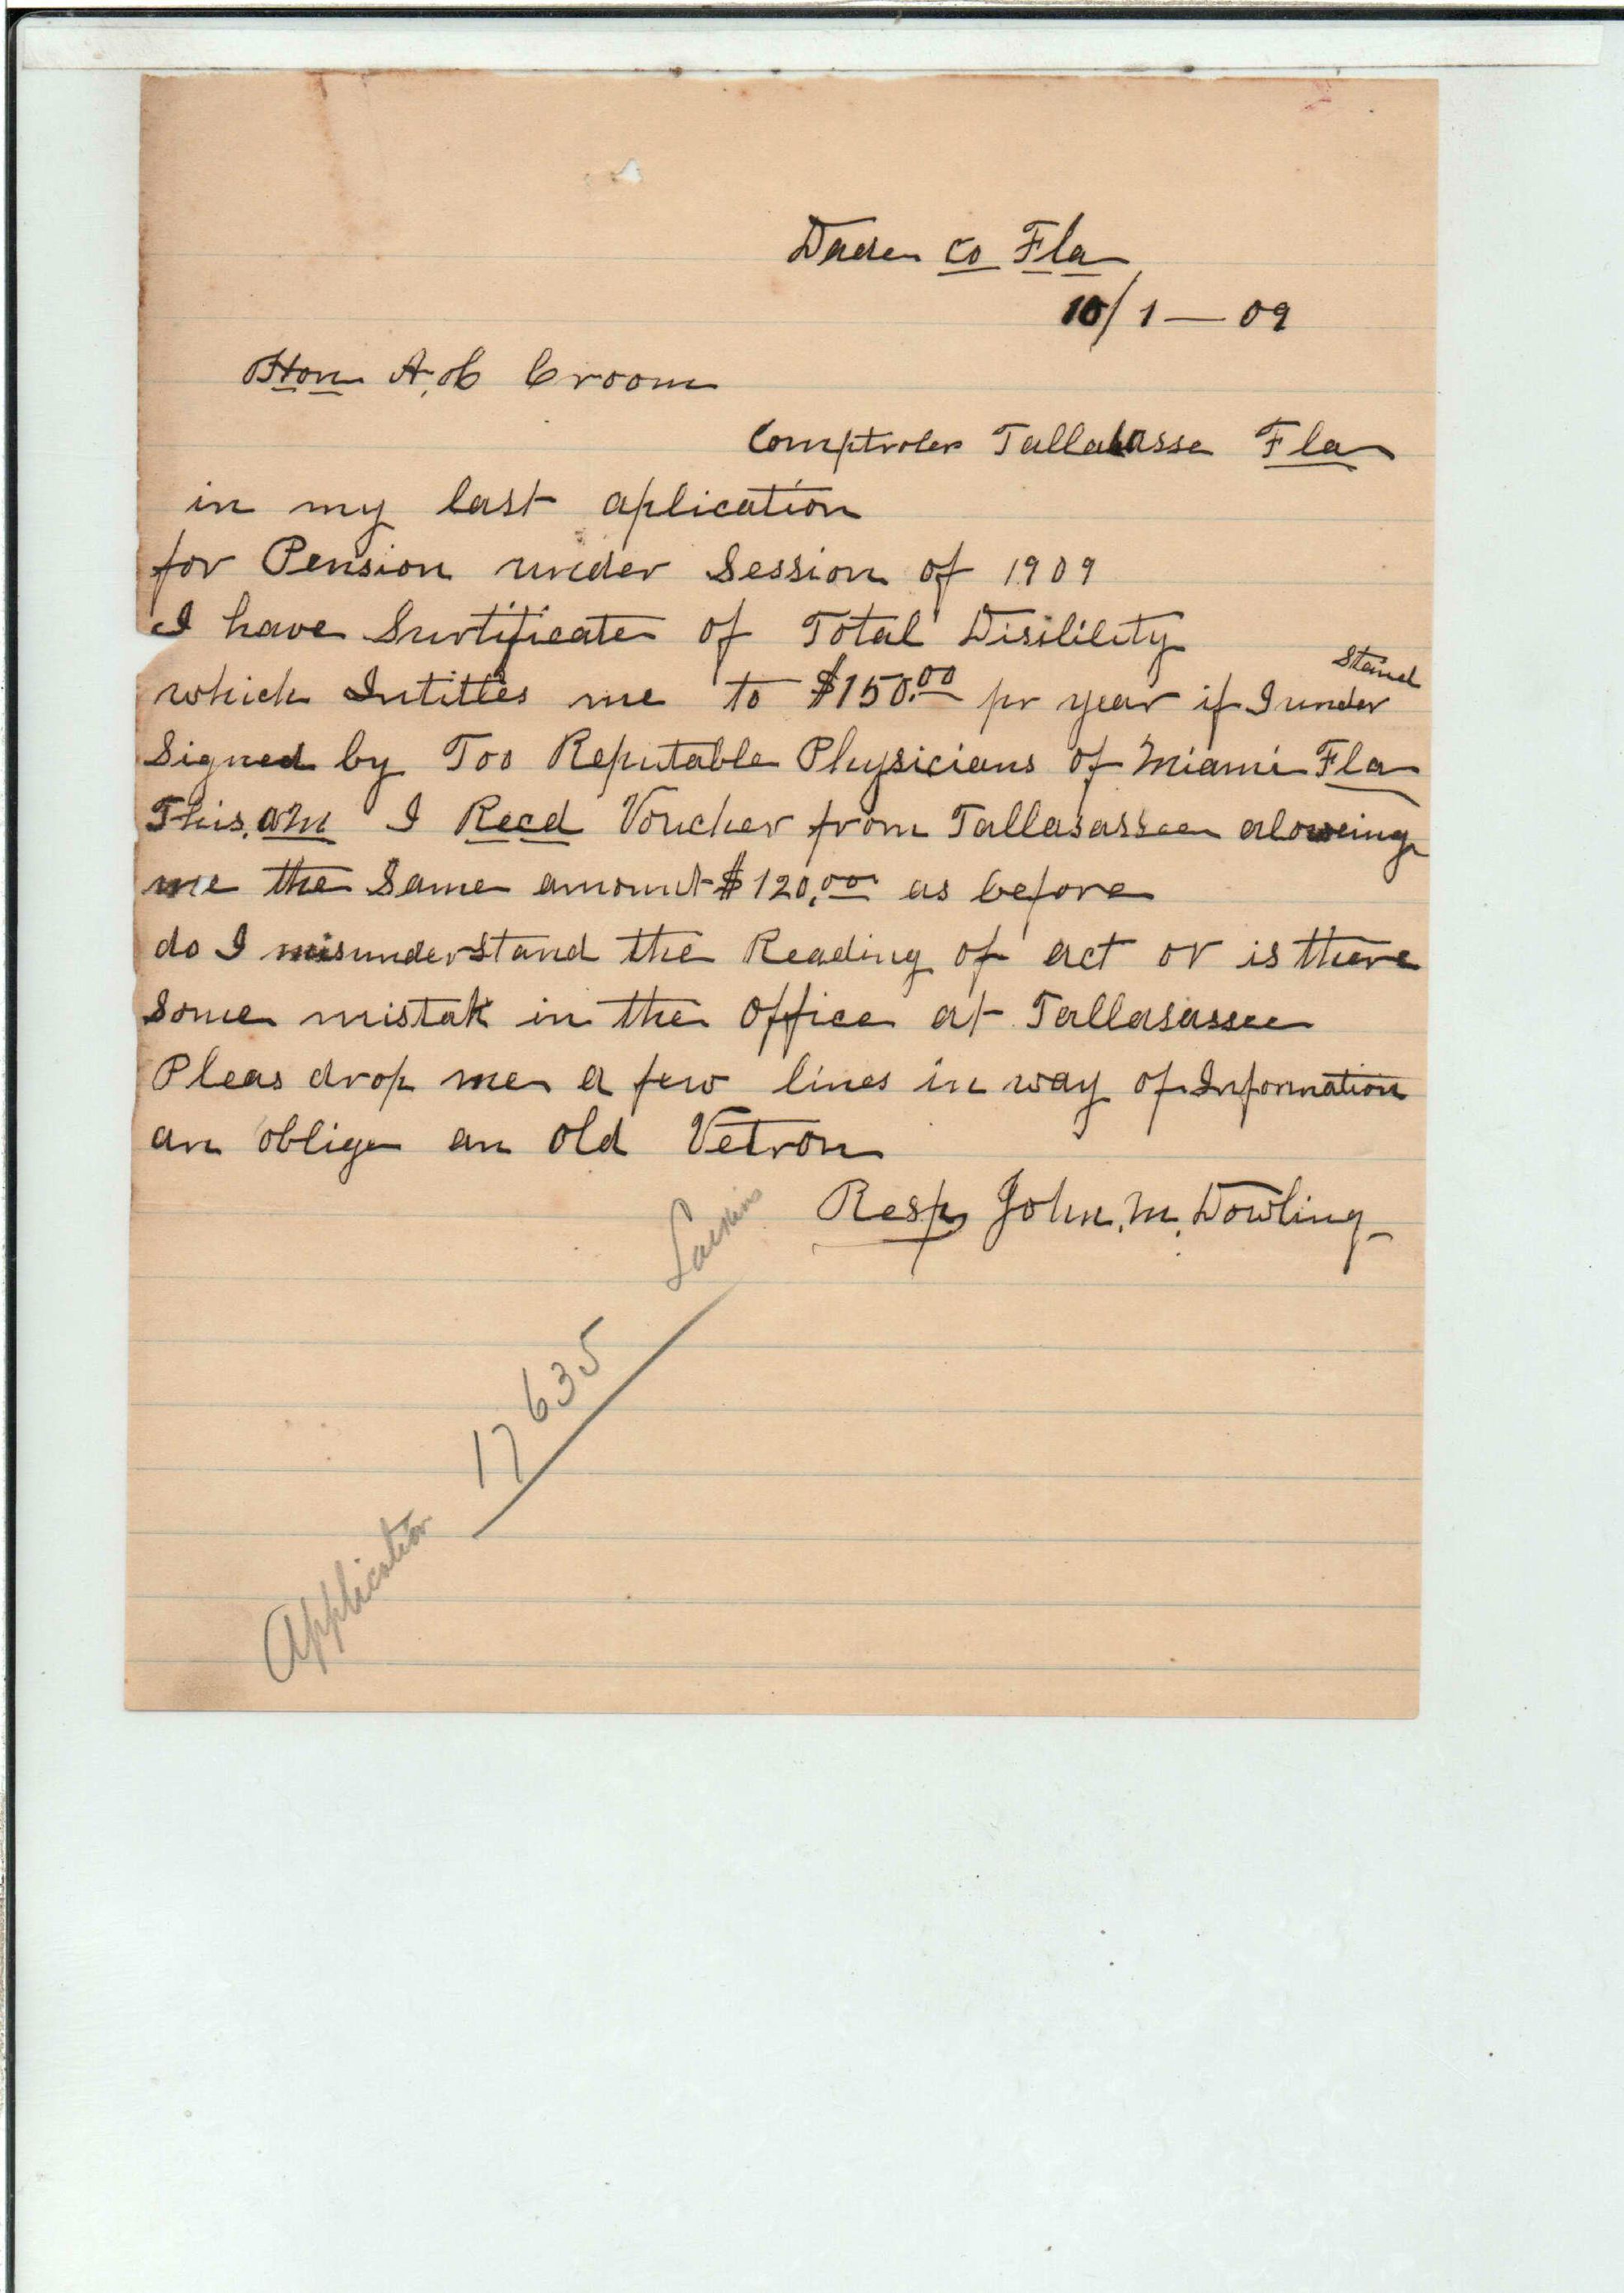 Dade Co Fla
10/1 — 09
Hon A. C Croom
Comptroler Tallahasse Fla
in my last aplication
for Pension under Session of 1909
I have Surtificate of Total Disilility
which Intitles me to $150.00 pr year if I under stand
Signed by Too Reputable Physicians of Miami Fla
This, am I Recd Voucher from Tallasassee aloweing
me the Same amount $120.00 as before
do I misunderstand the Reading of act or is there
Some mistak in the office at Tallasassee
Pleas drop me a few lines in way of Information
an oblige an old Vetron
Resp John. M. Dowling
Larkins
17635
Application